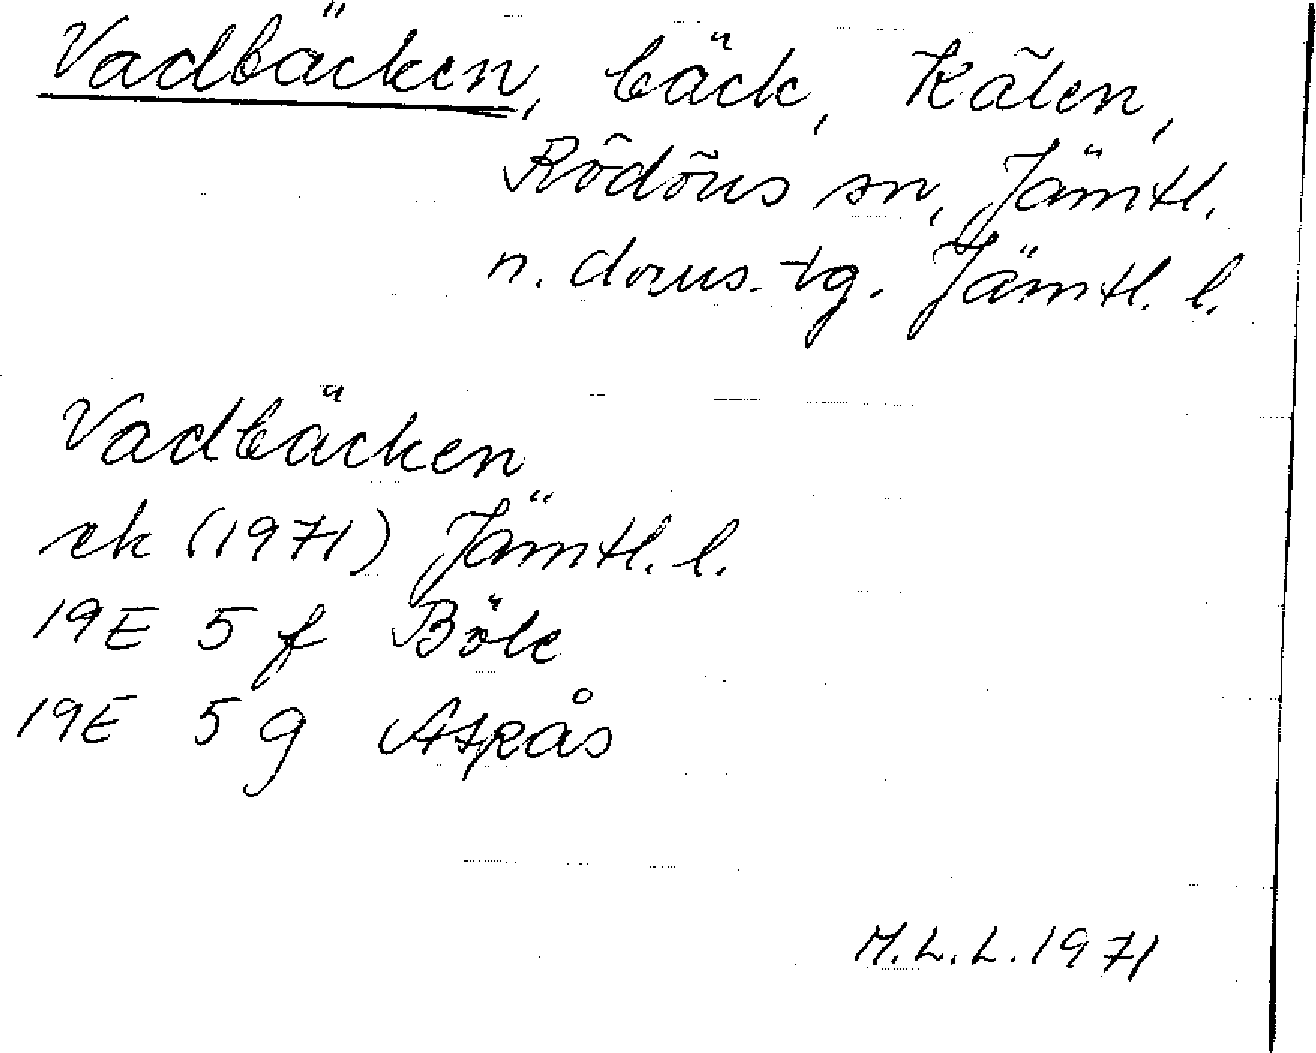 Vadbäcken, bäck, Kälen,
Rödöns sn, Jämtl.
n. doms. tg. Jämtl. l.
Vadbäcken
ek (1971) Jämtl. l.
19E 5 f Böle
19E 5 g Aspås
M.L.L. 1971